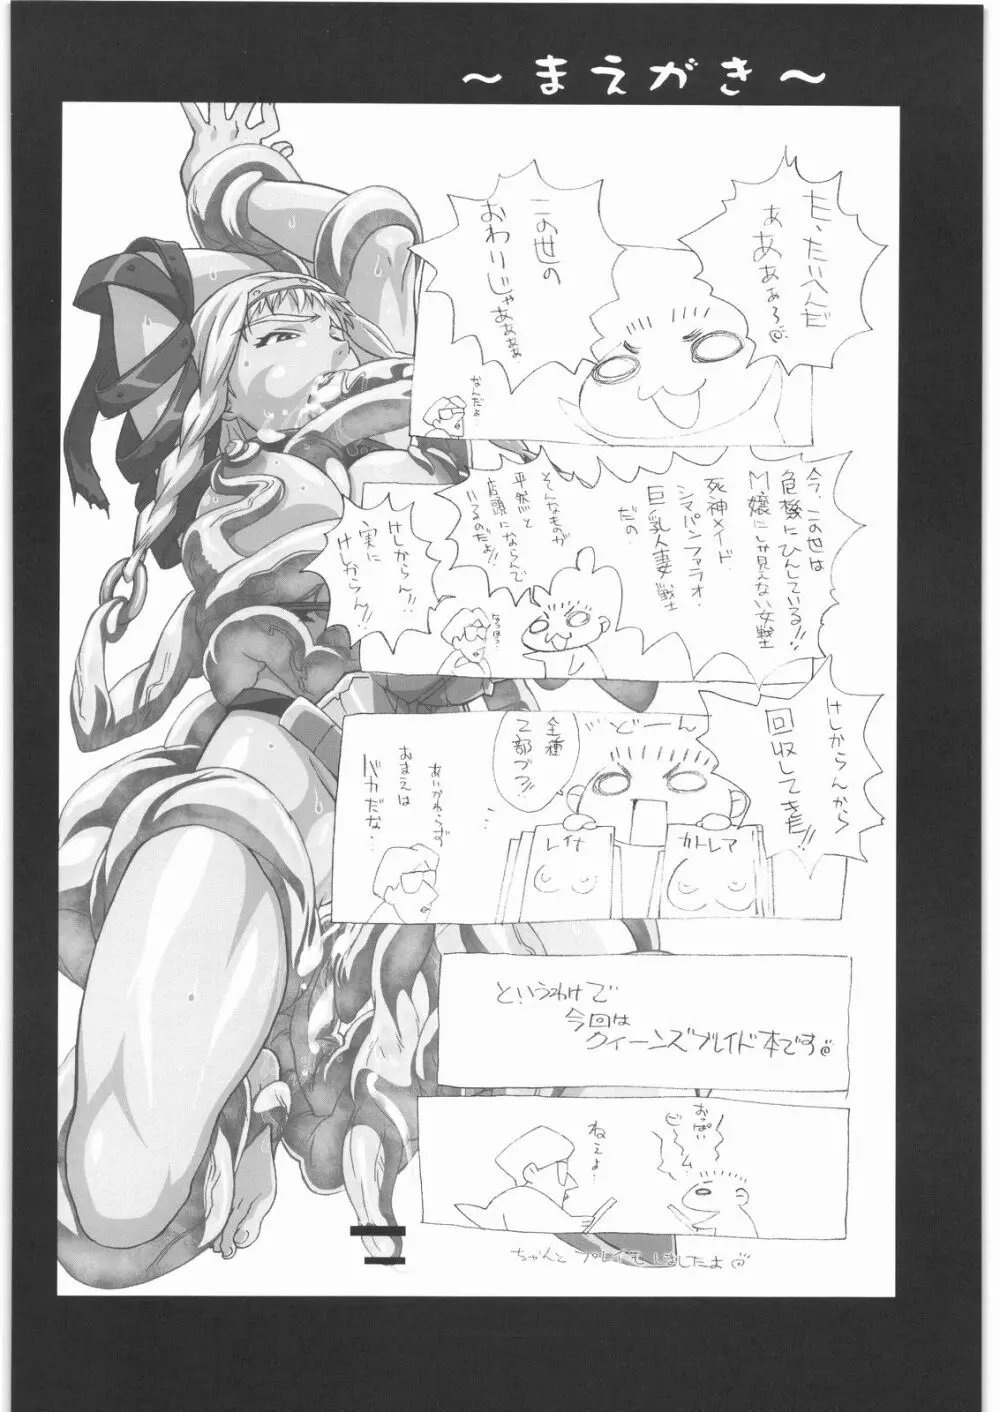 ～まえがき～
た、たいへんだ
ああぁぁ～
この世の
おわりじゃあぁぁぁ
なんだよ…
今、この世は
危機にひんしている!!
M嬢にしか見えない女戦士
死神メイド、
シマパンファラオ、
巨乳人妻戦士
だの…
そんなものが
平然と
店頭にならんで
いるのだよ!!
けしからん!!
実に
けしからん!!
けしからんから
回収してきた!!
どーん
全種
2部づつ!!
レイナ
カトレア
あいかわらず
おまえは
バカだな…
というわけで
今回は
クィーンズブレイド本です
おっぱい
ビーム
ねぇよ…
ちゃんとプレイもしましたよ